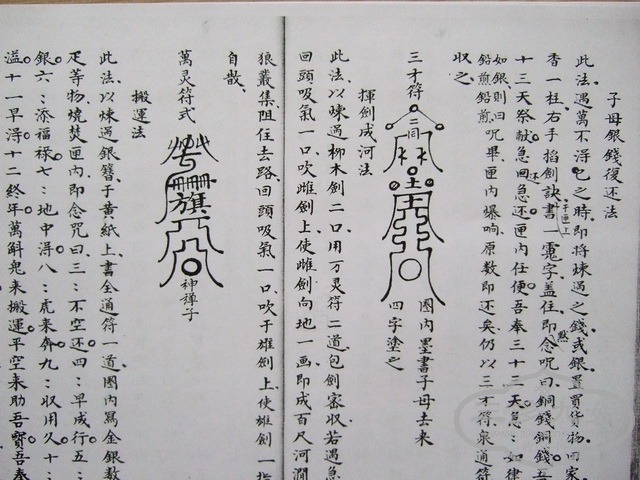 子母銀錢復还法
此法遇萬不得已之時、即将煉過之錢或銀、置買貨物、回家
香一柱、右手掐劍訣、書一寃字盖住、即念咒曰、銅錢銅錢吾
于匣上
默
十三天祭献急回急还、匣内任便吾奉三十三天急:如律
还
如銀、則曰鉛煎鉛煎、咒畢匣内爆响、原数即还矣、仍以三才符泉通符
収之、
三才符
二同
土
圈内墨書子母去来
四字塗之
揮劍成河法
此法、以煉過柳木劍二口、用万灵符二道、包劍密収、若遇急
回頭吸氣一口、吹雌劍上、使雌劍向地一画、即成百尺河澗
狼叢集、阻住去路、回頭吸氣一口、吹于雄劍上、使雄劍一指
自散、
萬灵符式
旗
神禪子
搬運法
此法、以煉過銀簪子黄紙上、書全通符一道、圈内寫金銀数
疋等物、燒焚匣内、即念咒曰、三:不空还四:早成行五:
銀六:添福禄七:地中得八:虎来奔九:収用久十:
溢十一早得十二終年萬斛鬼来搬運平空来助吾賢吾奉